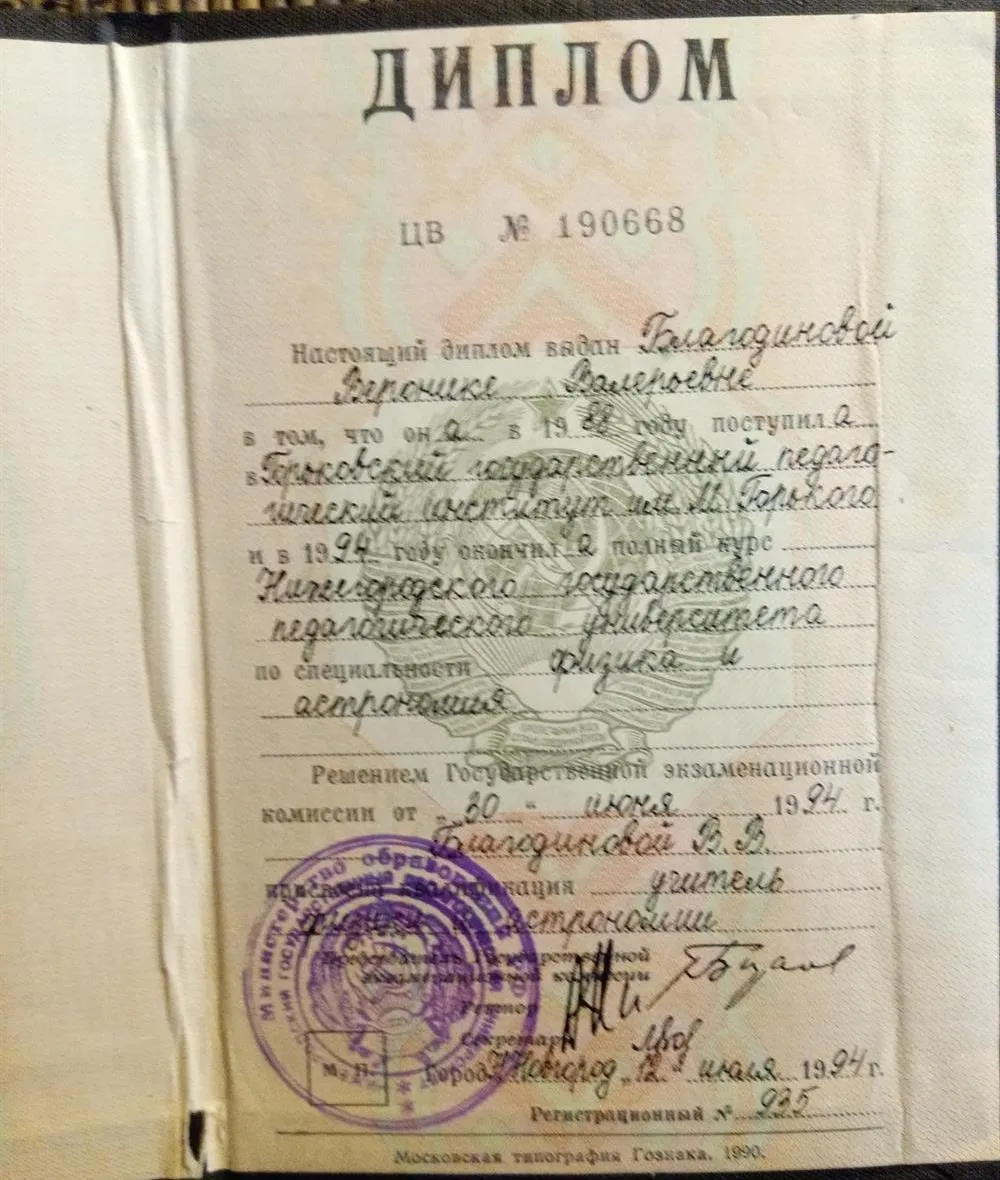 ДИПЛОМ
ЦВ № 190668
Настоящий диплом выдан Благодиновой
Веронике Валерьевне
в том, что она в 1988 году поступила
в Горьковский государственный педаго-
гический институт им. М. Горького
и в 1994 году окончила полный курс
Нижегородского государственного
педагогического университета
по специальности физика и
астрономия
Решением Государственной экзаменационной
комиссии от „30“ июня 1994 г.
Благодиновой В. В.
присвоена квалификация учитель
физики и астрономии
Председатель Государственной
экзаменационной комиссии
Ректор
Секретарь
М. П.
Город Н Новгород „12“ июля 1994 г.
Регистрационный № 935
Московская типография Гознака. 1990.
Министерство образования